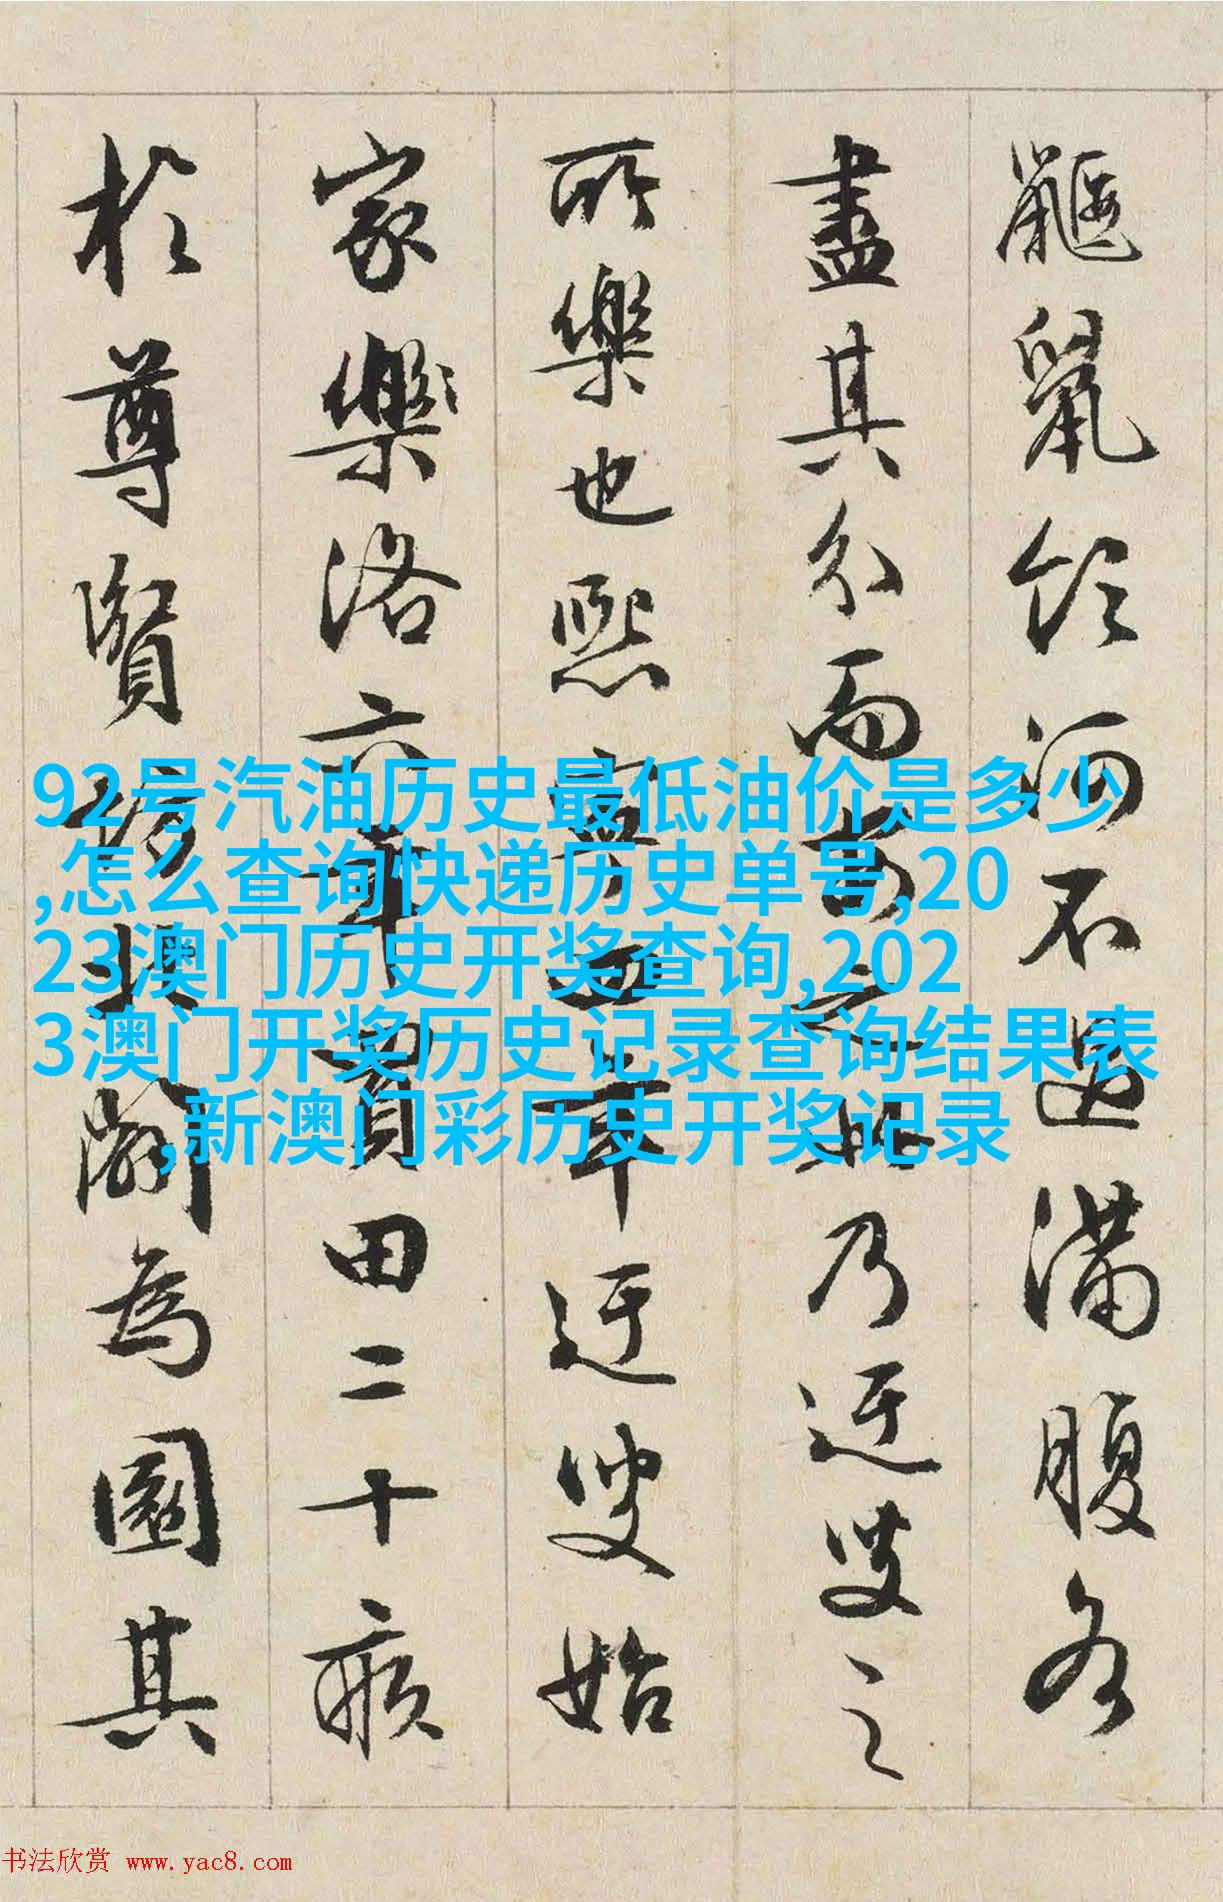 鼴鼠飲河不過滿腹各
盡其分而安之此乃迂叟之
所樂也熙寧四年迂叟始
家樂洛六年買田二十畝
於尊賢坊北闢為園其
92号汽油历史最低油价是多少
,怎么查询快递历史单号,20
23澳门历史开奖查询,202
3澳门开奖历史记录查询结果表
,新澳门彩历史开奖记录
书法欣赏 www.yac8.com